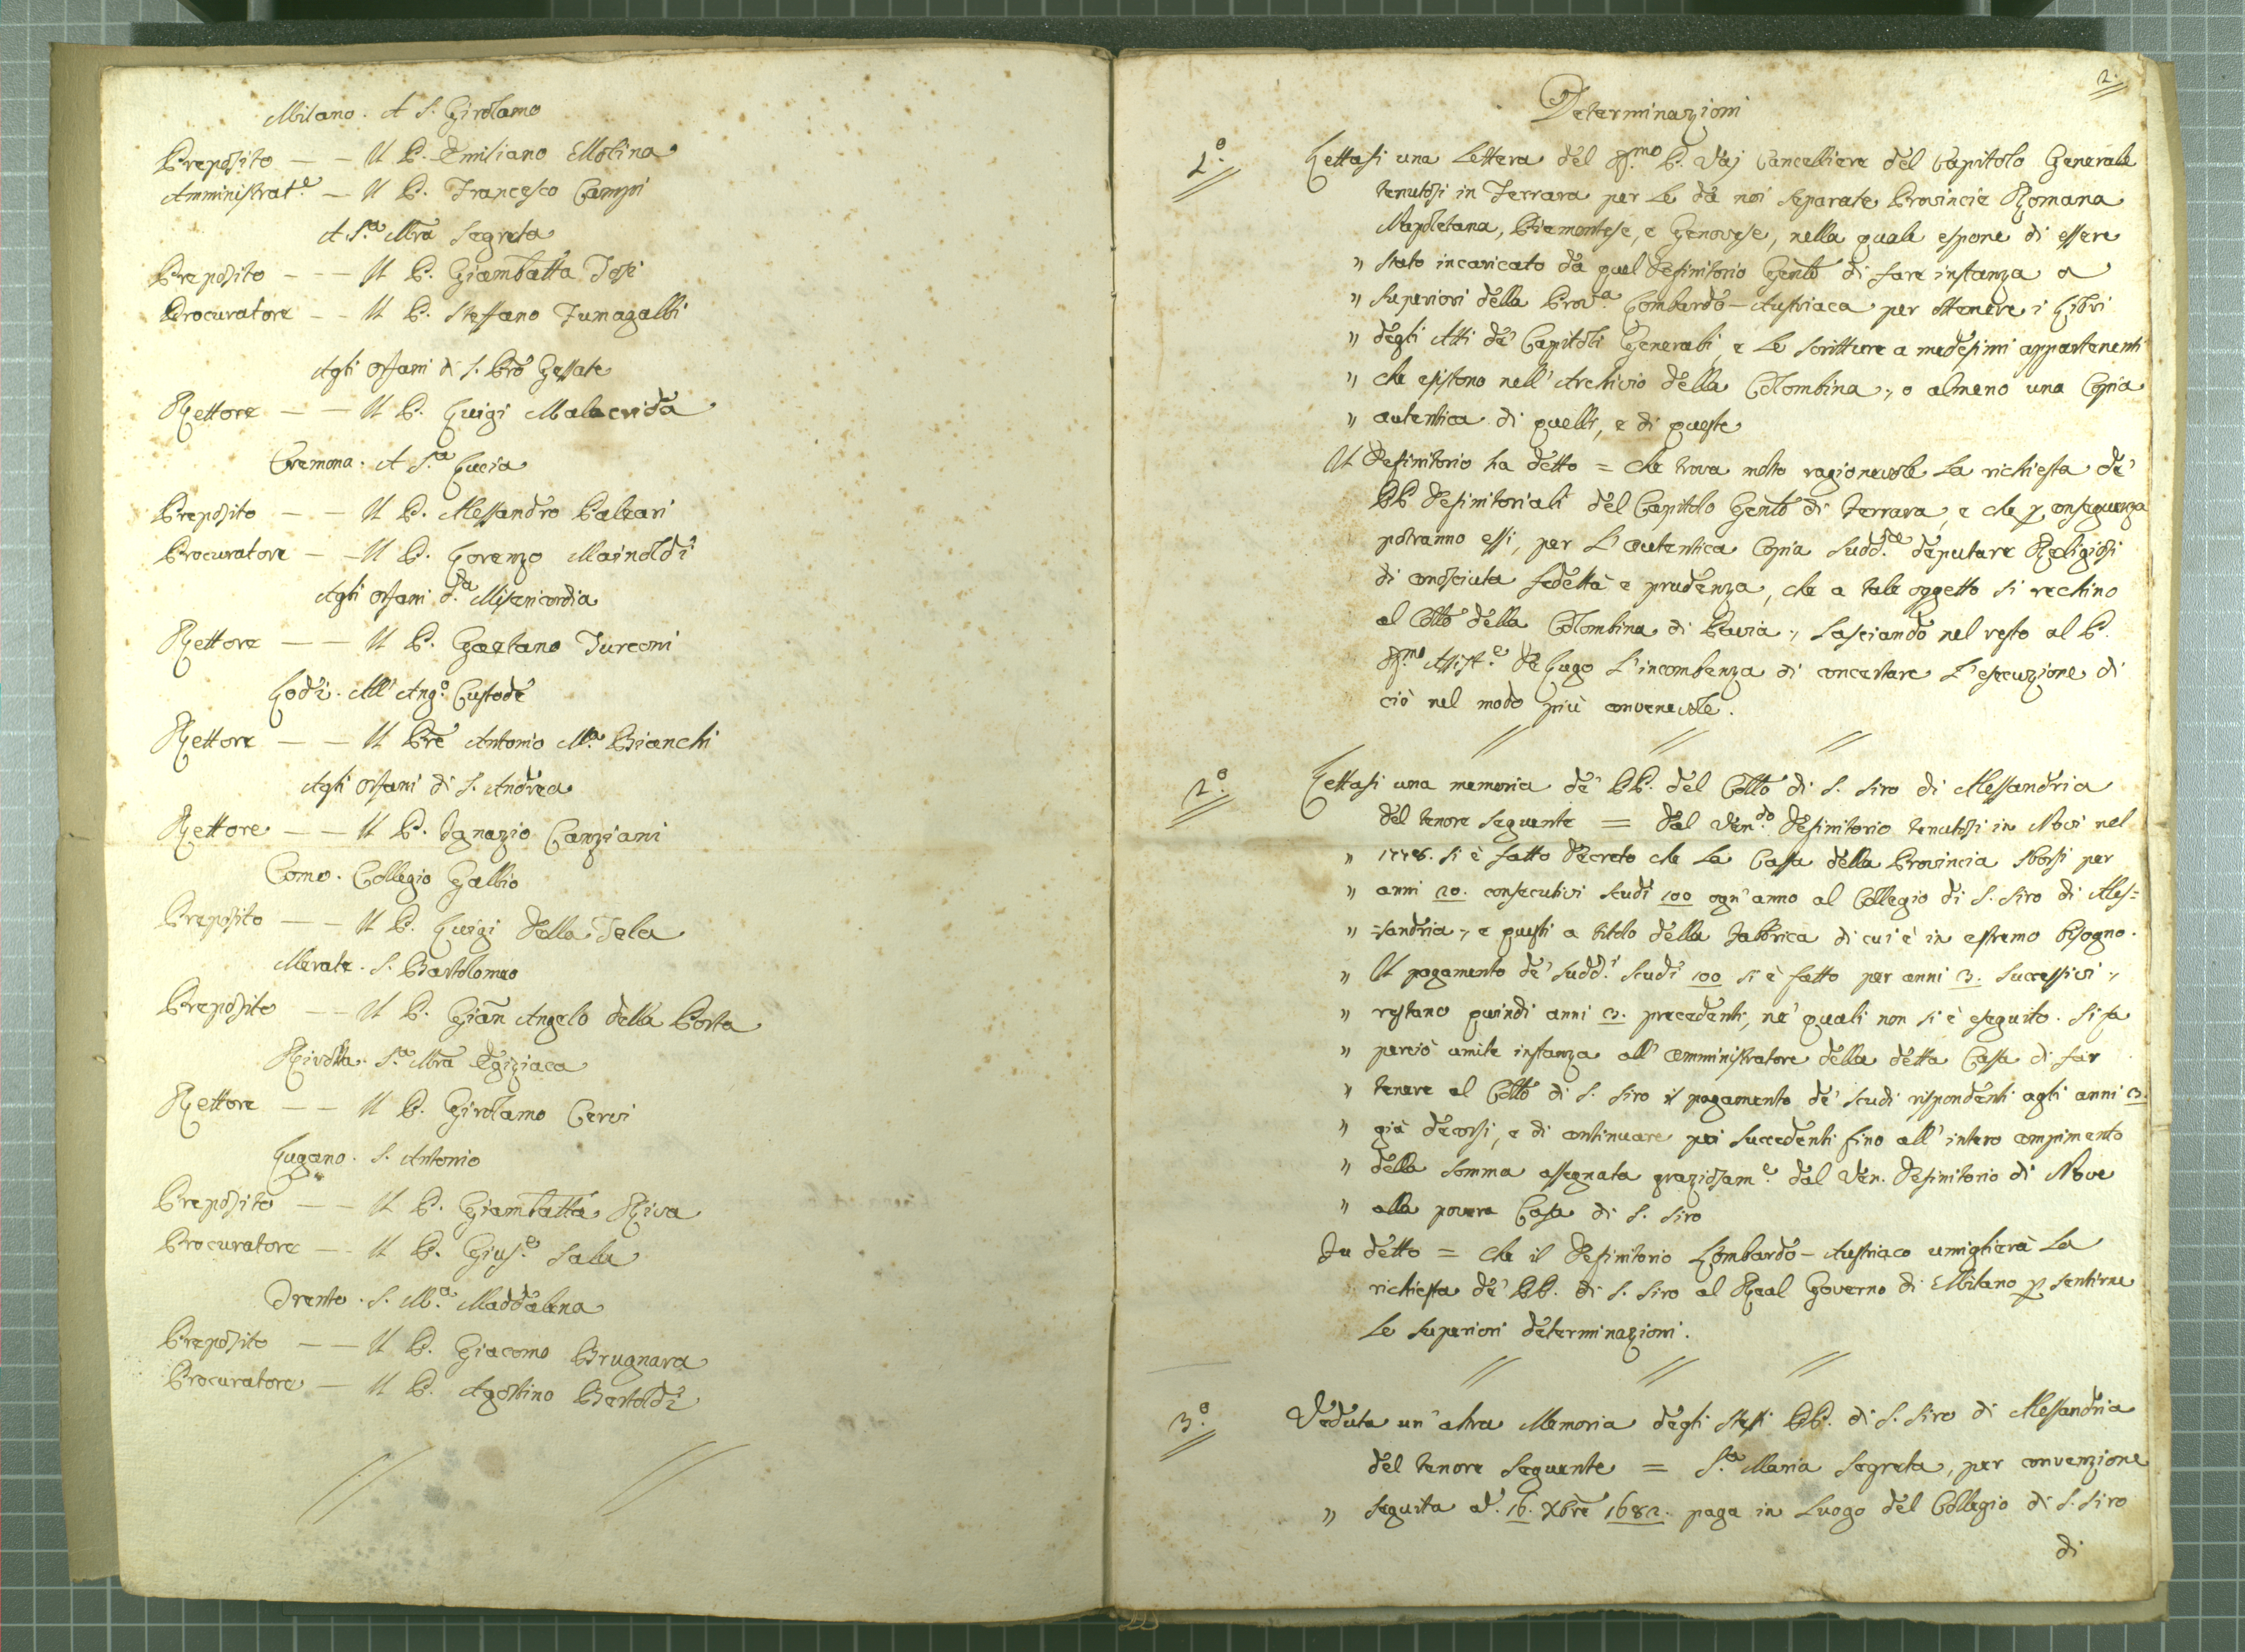 Milano. A S. Girolamo
Preposito — — Il P. Emiliano Molina
Amministrat.e — Il P. Francesco Campi
A S.a Mra Segreta
Preposito - - — Il P. Giambatta Tosi
Procuratore - - Il P. Steffano Fumagalli
Agli Orfani di S. Pro Gessate
Rettore — — Il P. Luigi Malacrida
Cremona. A S.a Lucia
Preposito — — Il P. Alessandro Paleari
Procuratore — — Il P. Lorenzo Mainoldi
Agli Orfani d.a Misericordia
Rettore — — Il P. Gaetano Turconi
Lodi. All' Ang.o Custode
Rettore — — Il Pre Antonio M.a Bianchi
Agli Orfani di S. Andrea
Rettore — — Il P. Ignazio Canziani
Como. Collegio Gallio
Preposito — — Il P. Luigi Della Tela
Merate. S. Bartolomeo
Preposito — — Il P. Gian Angelo della Porta
Rivolta. S.a Mra Egiziaca
Rettore — — Il P. Girolamo Cervi
Lugano. S. Antonio
Preposito — — Il P. Giambatta Riva
Procuratore — Il P. Gius.e Sala
Trento. S. M.a Maddalena
Preposito — — Il P. Giacomo Brugnara
Procuratore — Il P. Agostino Bertoldi
2.
Determinazioni
1.o Lettasi una Lettera del R.mo P. Vaj Cancelliere del Capitolo Generale
tenutosi in Ferrara per le da noi separate Provincie Romana
Napoletana, Piemontese, e Genovese, nella quale espone di essere
" stato incaricato da quel Definitorio Genle di fare instanza a
" Superiori della Prov.a Lombardo-Austriaca per ottenere i Libri
" degli Atti de' Capitoli Generali, e le scritture a medesimi appartenenti
" che esistono nell' Archivio della Colombina; o almeno una Copia
" autentica di quelli, e di queste
Il Definitorio ha detto = che trova molto ragionevole la richiesta de'
PP. Definitoriali del Capitolo Genle di Ferrara, e che p conseguenza
potranno essi, per l' autentica Copia sudd.a deputare Religiosi
di conosciuta fedeltà e prudenza, che a tale oggetto si rechino
al Collo della Colombina di Pavia; lasciando nel resto al P.
R.mo Assist.e De Lugo l' incombenza di concertare l' esecuzione di
ciò nel modo più convenevole.
2.o Lettasi una memoria de' PP. del Collo di S. Siro di Alessandria
del tenore seguente = Dal Ven.do Definitorio tenutosi in Novi nel
" 1778. si è fatto Decreto che la Cassa della Provincia sborsi per
" anni 20. consecutivi scudi 100 ogn' anno al Collegio di S. Siro di Ales=
" =sandria; e questi a titolo della Fabbrica di cui è in estremo bisogno.
" Il pagamento de' sudd.i scudi 100 si è fatto per anni 3. successivi;
" restano quindi anni 3. precedenti, ne' quali non si è eseguito. Si fa
" perciò umile instanza all' Amministratore della detta Cassa di far
" tenere al Collo di S. Siro il pagamento de' scudi rispondenti agli anni 3.
" già decorsi, e di continuare poi succedenti fino all' intero compimento
" della somma assegnata graziosam.e dal Ven. Definitorio di Nove
" alla povera Casa di S. Siro
Fu detto = che il Definitorio Lombardo-Austriaco umiglierà la
richiesta de' PP. di S. Siro al Real Governo di Milano p sentirne
le superiori determinazioni.
3.o Veduta un' altra Memoria degli stessi PP. di S. Siro di Alessandria
del tenore seguente = S.a Maria Segreta, per convenzione
" seguita a' 16. Xbre 1682. paga in luogo del Collegio di S. Siro
di